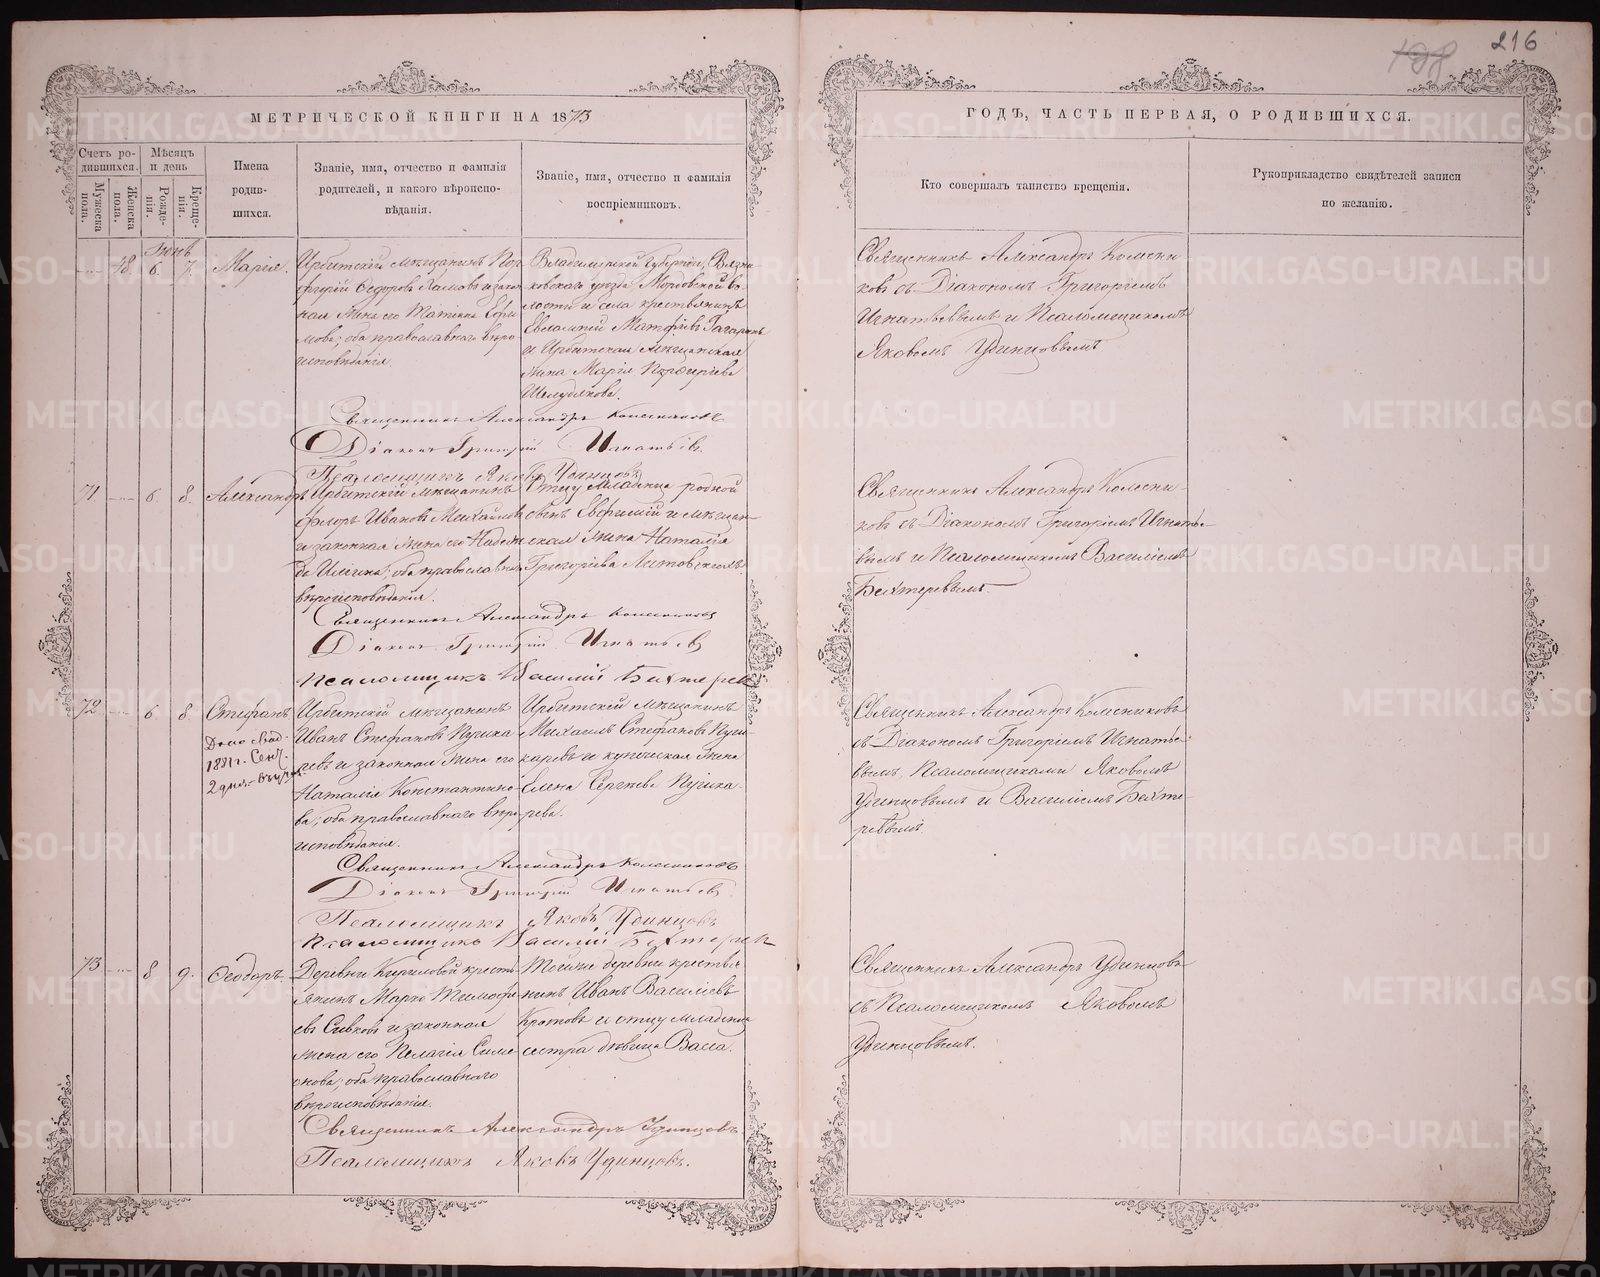 216
МЕТРИЧЕСКОЙ КНИГИ НА 1873
ГОДЪ, ЧАСТЬ ПЕРВАЯ, О РОДИВШИХСЯ.
Счетъ ро-
дившихся.
Мужеска
пола.
Женска
пола.
Мѣсяцъ
и день
Рожде-
нія.
Креще-
нія.
Имена
родив-
шихся.
Званіе, имя, отчество и фамилія
родителей, и какого вѣроиспо-
вѣданія.
Званіе, имя, отчество и фамилія
воспріемниковъ.
Кто совершалъ таинство крещенія.
Рукоприкладство свидѣтелей записи
по желанію.
Іюнь
48. 6. 7. Марія.
Ирбитскій мѣщанинъ Пор
фирій Ѳедоровъ и закон
ная жена его Татіана Ефи
мова; оба православнаго вѣро
исповѣданія.
Владимирской губерніи, Вязни
ковскаго уѣзда Мордовской во
лости и села крестьянинъ
Евлампій Матфіевъ Гагаринъ
и Ирбитская мѣщанская
жена Марія Порфиріева
Шелудякова.
Священникъ Александръ Колесни
ковъ съ Діакономъ Григоріемъ
Игнатьевымъ и Псаломщикомъ
Яковомъ Удинцовымъ
Священникъ Александръ Колесниковъ
Діаконъ Григорій Игнатьевъ.
Псаломщикъ Яковъ Удинцовъ
71 6. 8. Александръ
Ирбитскій мѣщанинъ
Флоръ Ивановъ Михайловъ
и законная жена его Надеж
да Ильина; оба православнаго
вѣроисповѣданія.
Отцу младенца родной
сынъ Евфимій и мѣщан-
ская жена Наталія
Григоріева Литовскихъ.
Священникъ Александръ Колесни-
ковъ съ Діакономъ Григоріемъ Игнатье-
вымъ и Псаломщикомъ Василіемъ
Бехтеревымъ.
Священникъ Александръ Колесниковъ
Діаконъ Григорій Игнатьевъ
Псаломщикъ Василій Бехтеревъ
72 6 8. Стефанъ
1881г. Сент.
Ирбитскій мѣщанинъ
Иванъ Стефановъ Пучка
ревъ и законная жена его
Наталія Константино
ва; оба православнаго вѣро
исповѣданія.
Ирбитскій мѣщанинъ
Михаилъ Стефановъ Пуч
каревъ и купеческая жена
Елена Сергѣева Пучка-
рева.
Священникъ Александръ Колесниковъ
съ Діакономъ Григоріемъ Игнатье-
вымъ, Псаломщиками Яковомъ
Удинцовымъ и Василіемъ Бехте-
ревымъ.
Священникъ Александръ Колесниковъ
Діаконъ Григорій Игнатьевъ
Псаломщикъ Яковъ Удинцовъ
Псаломщикъ Василій Бехтеревъ
73 8 9. Ѳеодоръ.
Деревни Кириловой кресть
янинъ Марко Тимофе
евъ Сивковъ и законная
жена его Пелагія Симе
онова; оба православнаго
вѣроисповѣданія.
Тойже деревни крестья
нинъ Иванъ Василіевъ
Кротовъ и отцу младенца
сестра дѣвица Васса.
Священникъ Александръ Удинцовъ
съ Псаломщикомъ Яковомъ
Удинцовымъ.
Священникъ Александръ Удинцовъ
Псаломщикъ Яковъ Удинцовъ.
METRIKI.GASO-URAL.RU